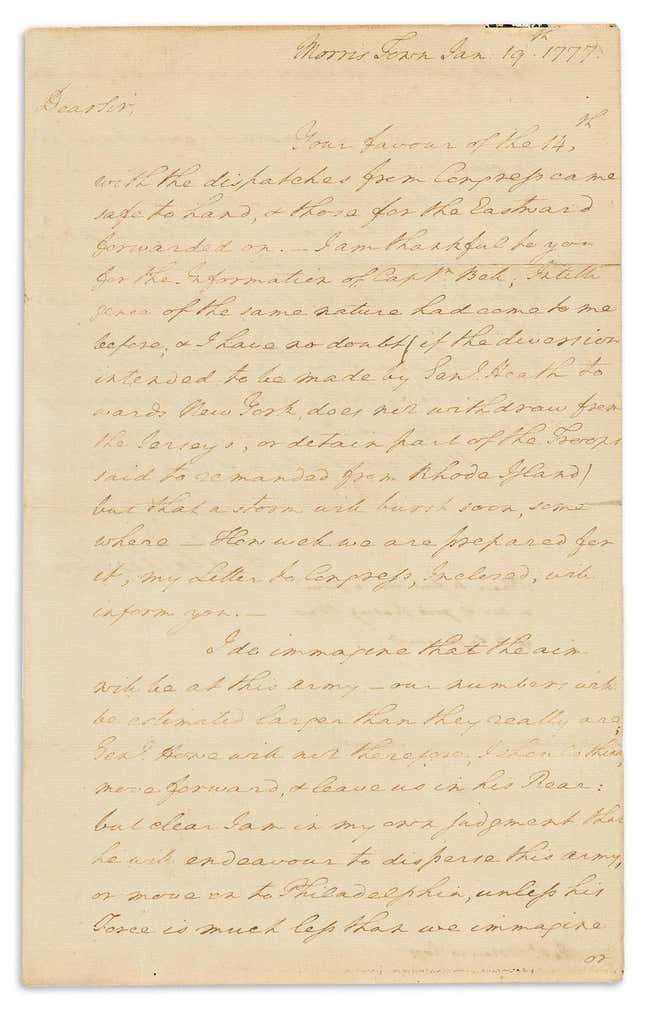 Morris Town Jan. 19th. 1777.
Dear Sir,
Your favour of the 14th
with the dispatches from Congress came
safe to hand, & those for the Eastward
forwarded on. — I am thankful to you
for the Information of Captn. Bell; Intelli
gence of the same nature had come to me
before; & I have no doubt (if the diversion
intended to be made by Genl. Heath to
wards New York, does not withdraw from
the Jerseys, or detain part of the Troops
said to remanded from Rhode Island)
but that a storm will burst soon, some
where — How well we are prepared for
it, my Letter to Congress, Inclosed, will
inform you. —
I do immagine that the aim
will be at this army — our numbers will
be estimated larger than they really are;
Genl. Howe will not therefore, I shou'd think,
move forward, & leave us in his Rear:
but clear I am in my own judgment that
he will endeavour to disperse this army,
or move on to Philadelphia, unless his
Force is much less than we immagine
or